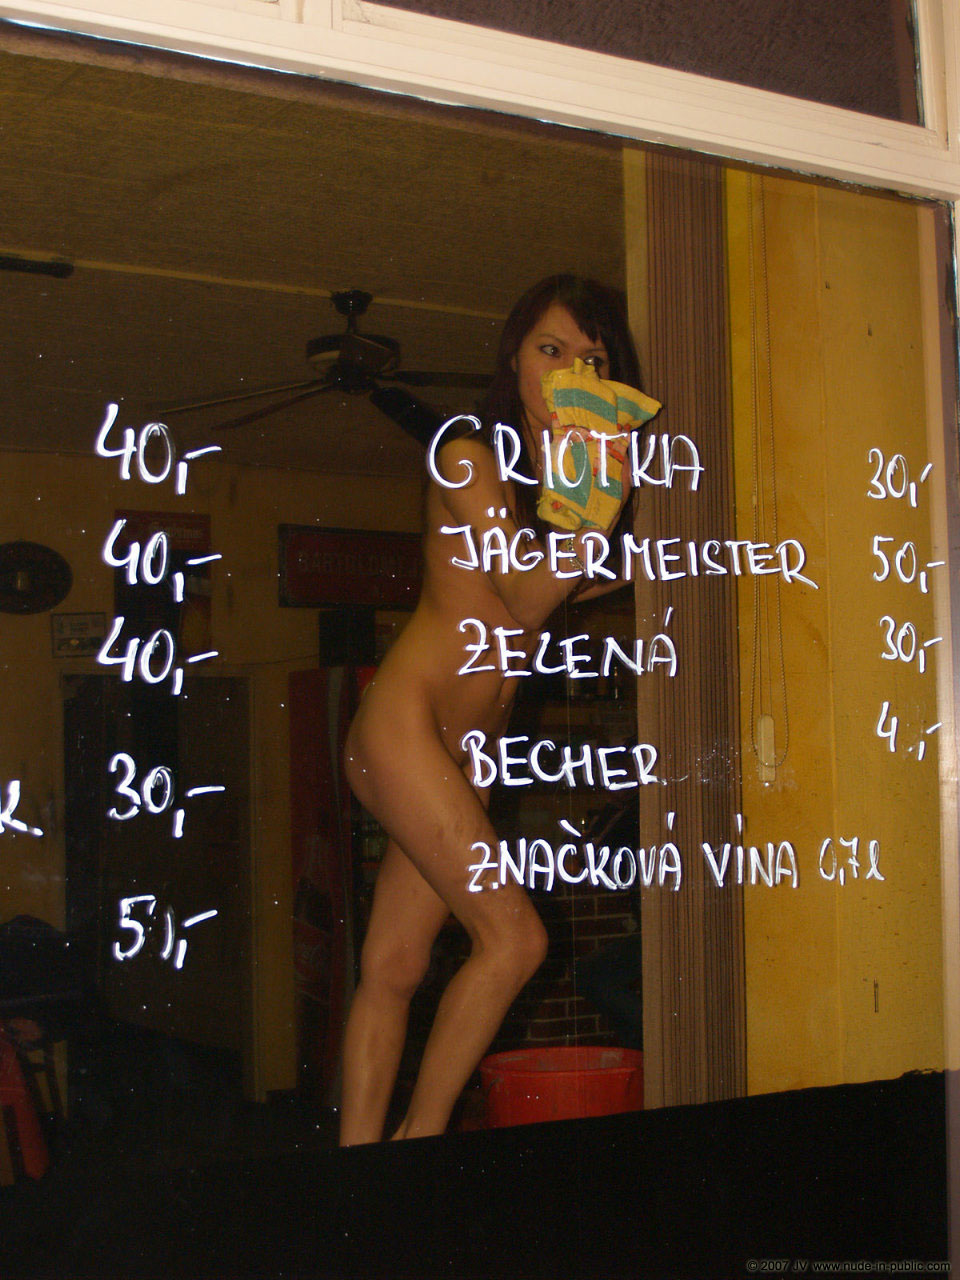 40,- GRIOTKA 30,-
40,- JÄGERMEISTER 50,-
40,- ZELENÁ 30,-
30,- BECHER 4 ,-
K.
ZNAČKOVÁ VÍNA 0,7l
5 ,-
© 2007 JV www.nude-in-public.com